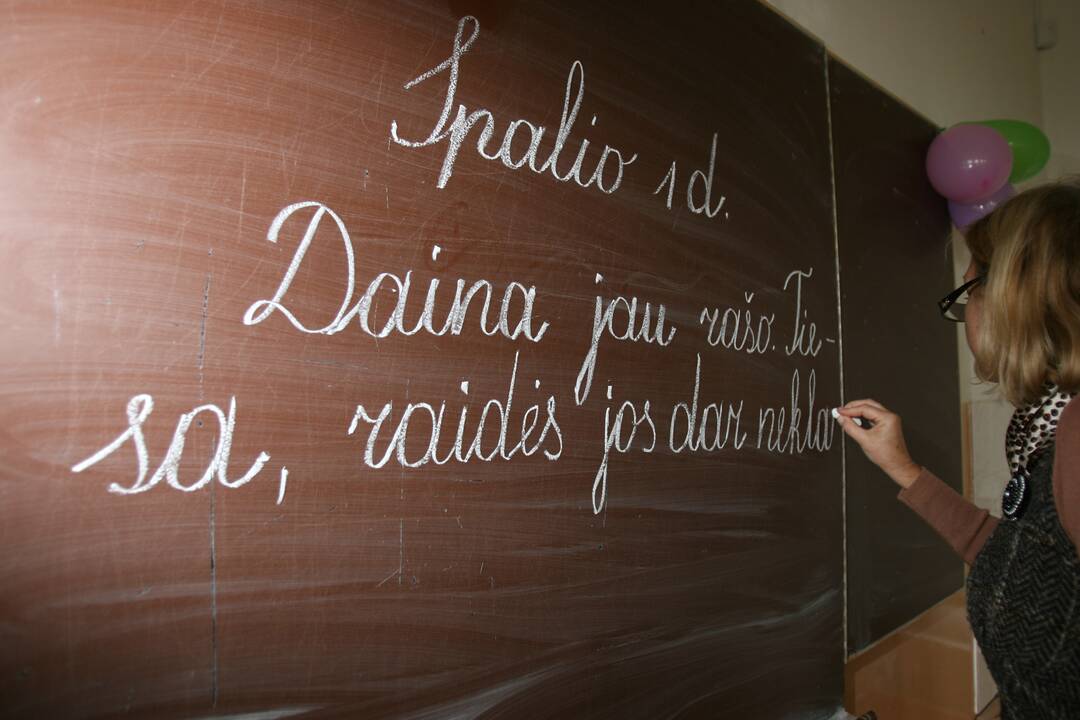 Spalio 1 d.
Daina jau rašo. Tie-
sa, raidės jos dar nekla